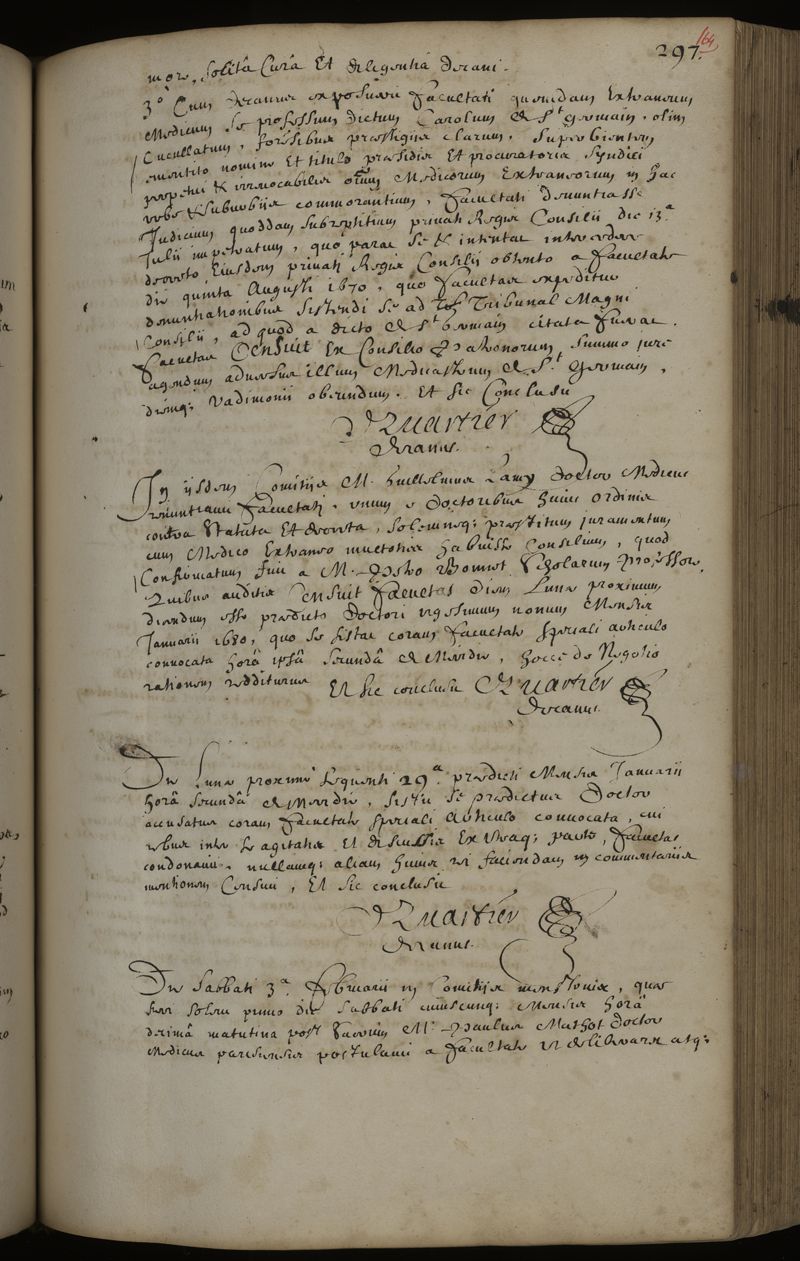 297.
164
more, solitâ Curâ Et diligentiâ decani.
3° Cum decanus exposuisset Facultati quemdam Extraneum
Medicum se professum dictum Carolum de St germain, olim
Cucullatum, forsibus praestigiis clarum, superbientem
ementito nomine Et titulo praesidis Et procuratoris syndici
perpetui & irrevocabilis omnium Medicorum Extraneorum in hac
urbe & suburbiis commorantium, Facultati denuntiasse
Judicium quoddam subreptitium privati Regis Consilii die 13a
Julii impetratum, quo parat se & intentat intercedere
decreto Eiusdem privati Regis Consilii obtento a Facultate
die quinta Augusti 1670, quo Facultas expeditur
denuntiationibus sistendi se ad Tribunal Magni
Consilii, ad quod a dicto de St Germain citata fuerat.
Facultas Censuit Ex Consilio Patronorum summo jure
agendum adversus illum Medicastrum de St. Germain,
dieiq; vadimonii obeundum. Et sic Conclusit
Quartier
Decanus.
In iisdem Comitiis M. Guillelmus Lamy Doctor Medicus
renuntiavit Facultati, unum e Doctoribus huius ordinis
contra statuta Et decreta, solemneq; praestitum juramentum
cum Medico Extraneo inivisse Consilium, quod
Confirmatum fuit a M. Petro Bonnet Scholarum Professore,
Quibus auditis Censuit Facultas diem Lunae proximum
dicendum esse praedicto Doctori vigesimum nonum Mensis
Januarii 1680, quo se sistat coram Facultate speciali articulo
convocata horâ ipsâ secundâ de Meridie, hocce de Negotio
rationem redditurus Et sic conclusit Quartier
Decanus.
Die Lunae proximè sequenti 29a. praedicti Mensis Januarii
horâ secundâ de Meridie, sistit se praedictus Doctor
accusatus coram Facultate speciali Articulo convocata,
rebus inter se agitatis Et discussis Ex utraq; parte, Facultas
condonavit, nullamq; aliam huius rei faciendam in commentariis
mentionem Censuit, Et sic conclusit
Quartier
Decanus.
Die Sabbati 3a. Februarii in Comitiis menstruis, quae
fieri solent primo die Sabbati cuiuscunq; Mensis horâ
decimâ matutina post sacrum Mr. Paulus Mattot Doctor
Medicus parisiensis postulavit a Facultate ut deliberaret atq;